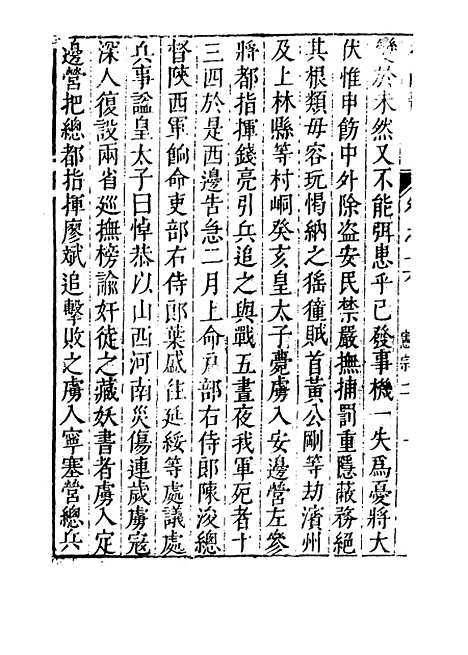 變於未然又不能弭患乎已發事機一失爲憂將大
伏惟申飭中外除盗安民禁嚴撫捕罰重隱蔽務絕
其根類毋容玩愒納之猺獞賊首黃公剛等劫濱州
及上林縣等村峒癸亥皇太子薨虜入安邊營左參
將都指揮錢亮引兵追之與戰五晝夜我軍死者十
三四於是西邊告急二月上命戶部右侍郎陳浚總
督陝西軍餉命吏部右侍郎葉盛往延綏等處議處
兵事謚皇太子曰悼恭以山西河南災傷連歲虜寇
深入復設兩省廵撫榜諭奸徒之藏妖書者虜入定
邊營把總都指揮廖斌追擊敗之虜入寧塞營總兵
憲宗二